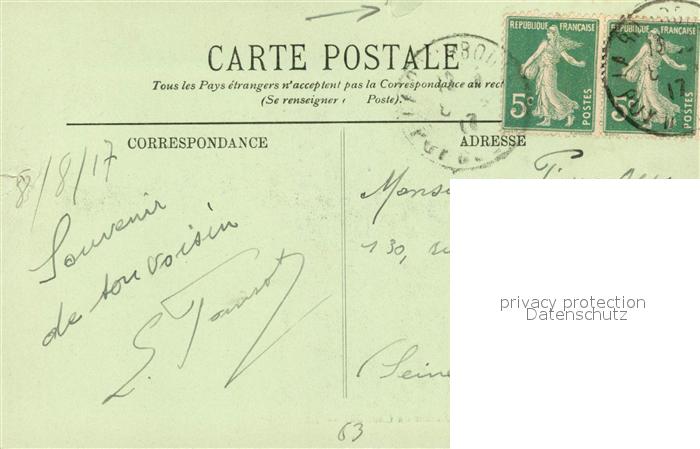 CARTE POSTALE
Tous les Pays étrangers n'acceptent pas la Correspondance au rect
(Se renseigner Poste).
CORRESPONDANCE
ADRESSE
RÉPUBLIQUE FRANÇAISE
5c
POSTES
RÉPUBLIQUE FRANÇAISE
5c
POSTES
8/8/17
Souvenir
de ton voisin
Mons
130,
Seine
privacy protection
Datenschutz
63